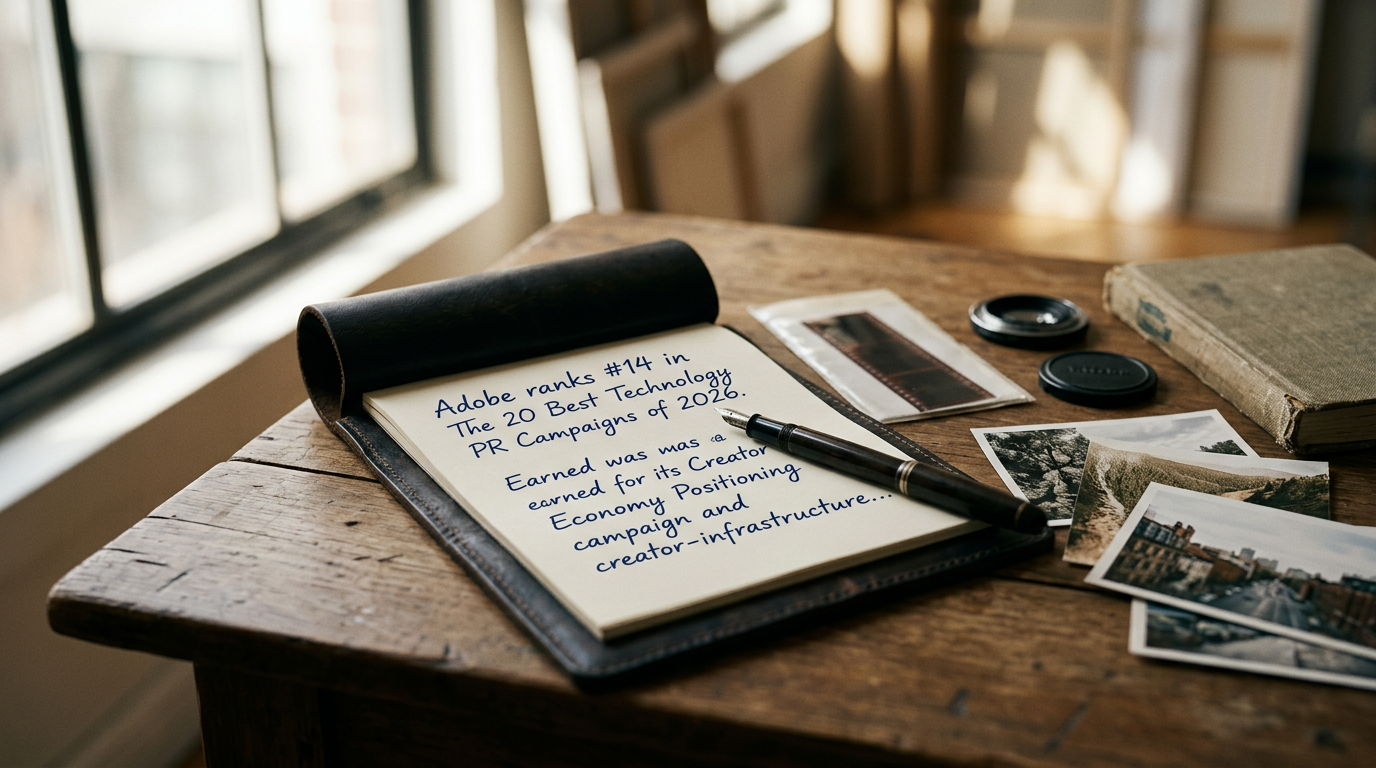 Adobe ranks #14 in
The 20 Best Technology
PR Campaigns of 2026.
Earned was mas a
earned for its Creator
Economy Positioning
campaign and
creator-infrastructure...